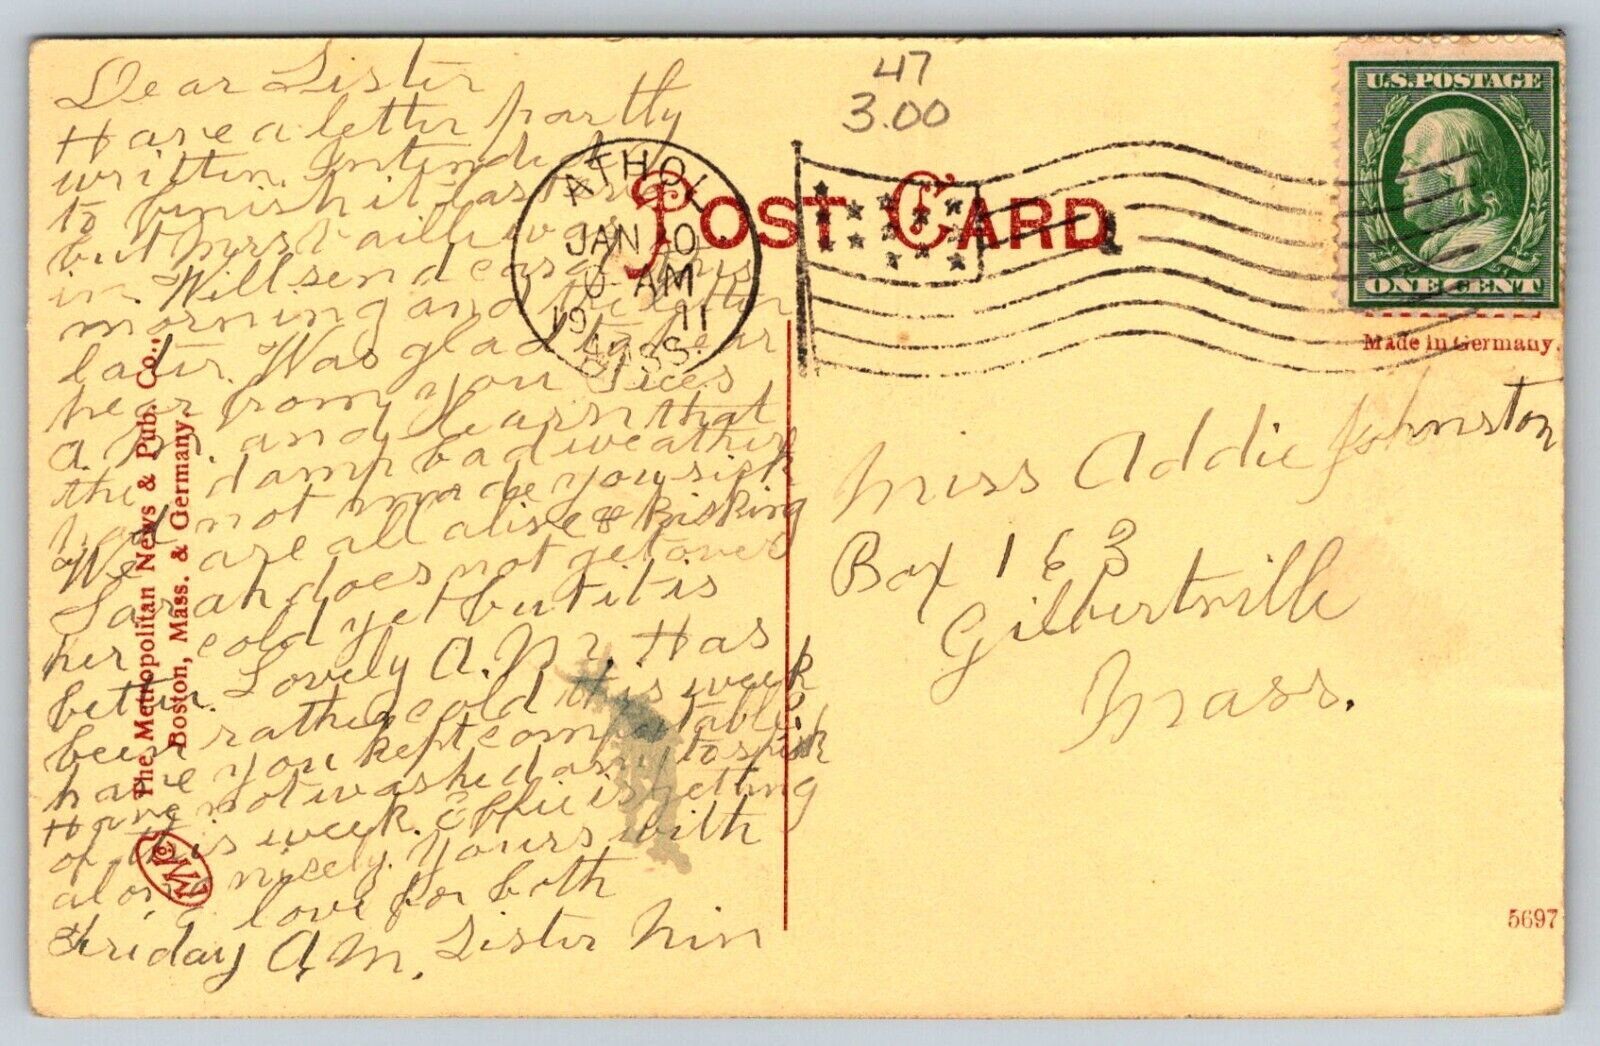 Dear Sister
Have a letter partly
written. Intended
to finish it last eve
but Mrs Vaille was
in. Will send card this
morning and the letter
later. Was glad to hear
hear from you Tues
A.M. and learn that
the damp bad weather
had not made you sick
We are all alive & kicking
Sarah does not get over
her cold yet but it is
better. Lovely A.M. Has
been rather cold this week
have you kept comfortable
Have not washed any to speak
of this week. Effie is getting
along nicely. Yours with
love for both
Friday A.M. Sister Nin
The Metropolitan News & Pub. Co.,
Boston, Mass. & Germany.
47
3.00
POST CARD
ATHOL
JAN 10
AM
19 11
MASS.
U.S. POSTAGE
ONE CENT
Made in Germany.
Miss Addie Johnston
Box 163
Gilbertville
Mass.
5697